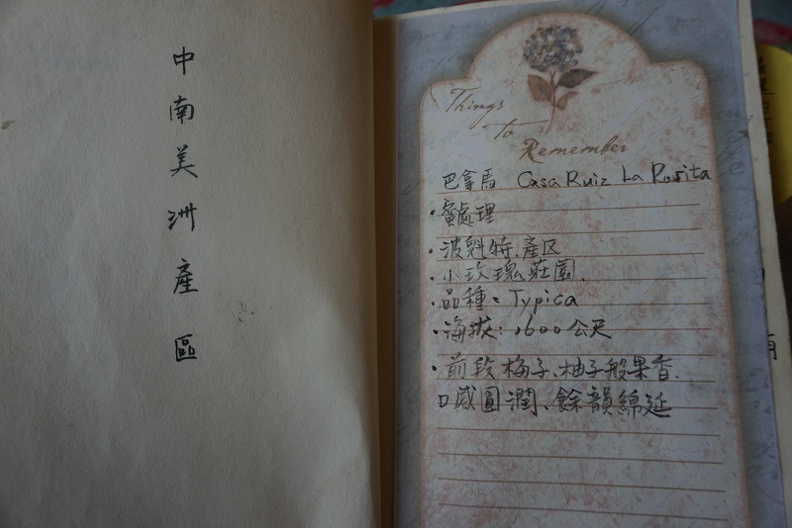 中南美洲產區
Things
to
Remember
巴拿馬 Casa Ruiz La Rosita
·蜜處理
·波魁特產区
·小玫瑰莊園
·品種:Typica
·海拔:1600公尺
·前段梅子、柚子般果香.
口感圓潤、餘韻綿延